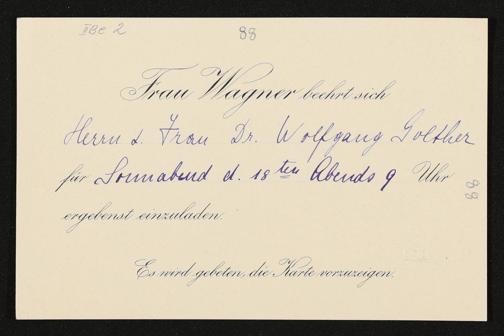 II Be 2
88
Frau Wagner beehrt sich
Herrn u. Frau Dr. Wolfgang Golther
für Sonnabend d. 18ten Abends 9 Uhr
88
ergebenst einzuladen.
Es wird gebeten, die Karte vorzuzeigen.